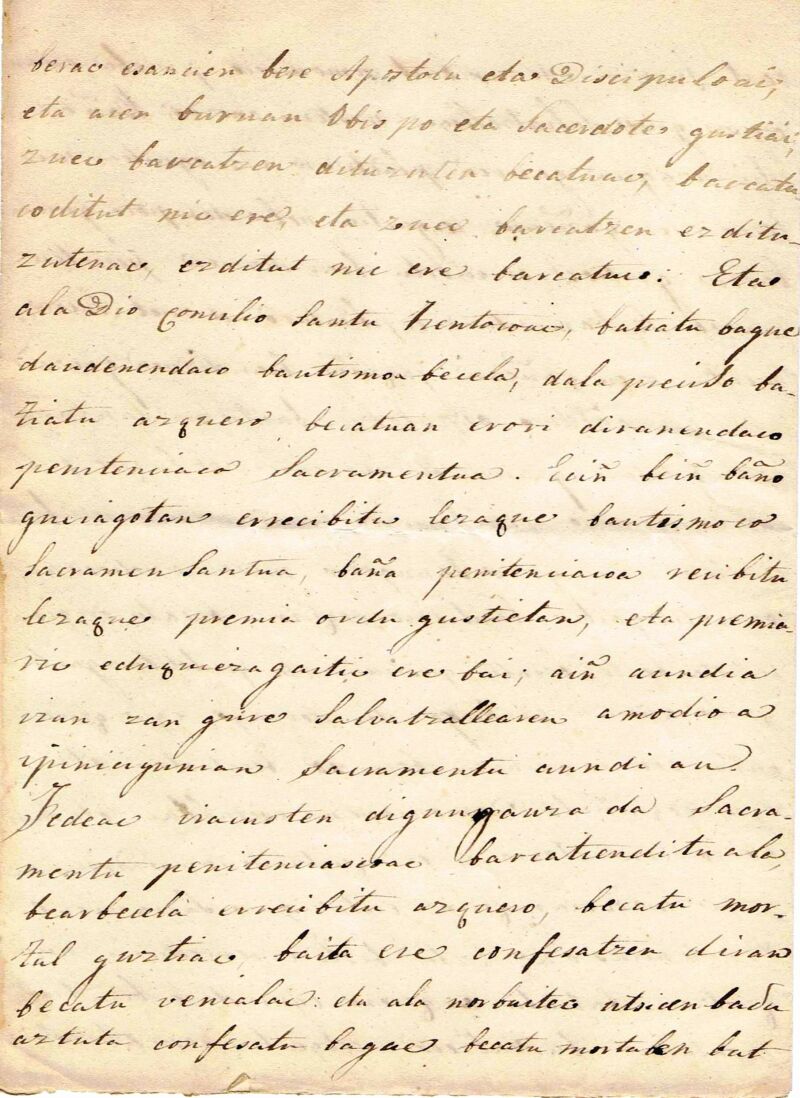 berac esancien bere Apostolu eta Discipuloai,
eta aien buruan Obispo eta Sacerdote gustiai,
zuec barcatzen dituzuten becatuac, barcatu
coditut nic ere, eta zuec barcatzen ez ditu-
zutenac, ez ditut nic ere barcatuco: Eta
ala Dio Concilio Santu Trentocoac, batiatu bague
daudenendaco bautismoa becela, dala preciso ba-
tiatu azquero becatuan erori diranendaco
penitenciaco Sacramentua. Eciñ beiñ baño
gueiagotan errecibitu lezaque bautismoco
Sacramen Santua, baña penitenciacoa recibitu
lezaque premia ordu gustietan, eta premia-
ric eduqui ezagaitic ere bai; aiñ aundia
izan zan gure Salvatzallearen amodioa
ipinicigunian Sacramentu aundi au.
Fedeac iracusten digun gauza da Sacra-
mentu penitenciascoac barcatiendituala,
bear becela errecibitu azquero, becatu mor-
tal guztiac, baita ere confesatzen diran
becatu venialac: eta ala norbaitec utsicen badu
aztuta confesatu bague becatu mortalen bat